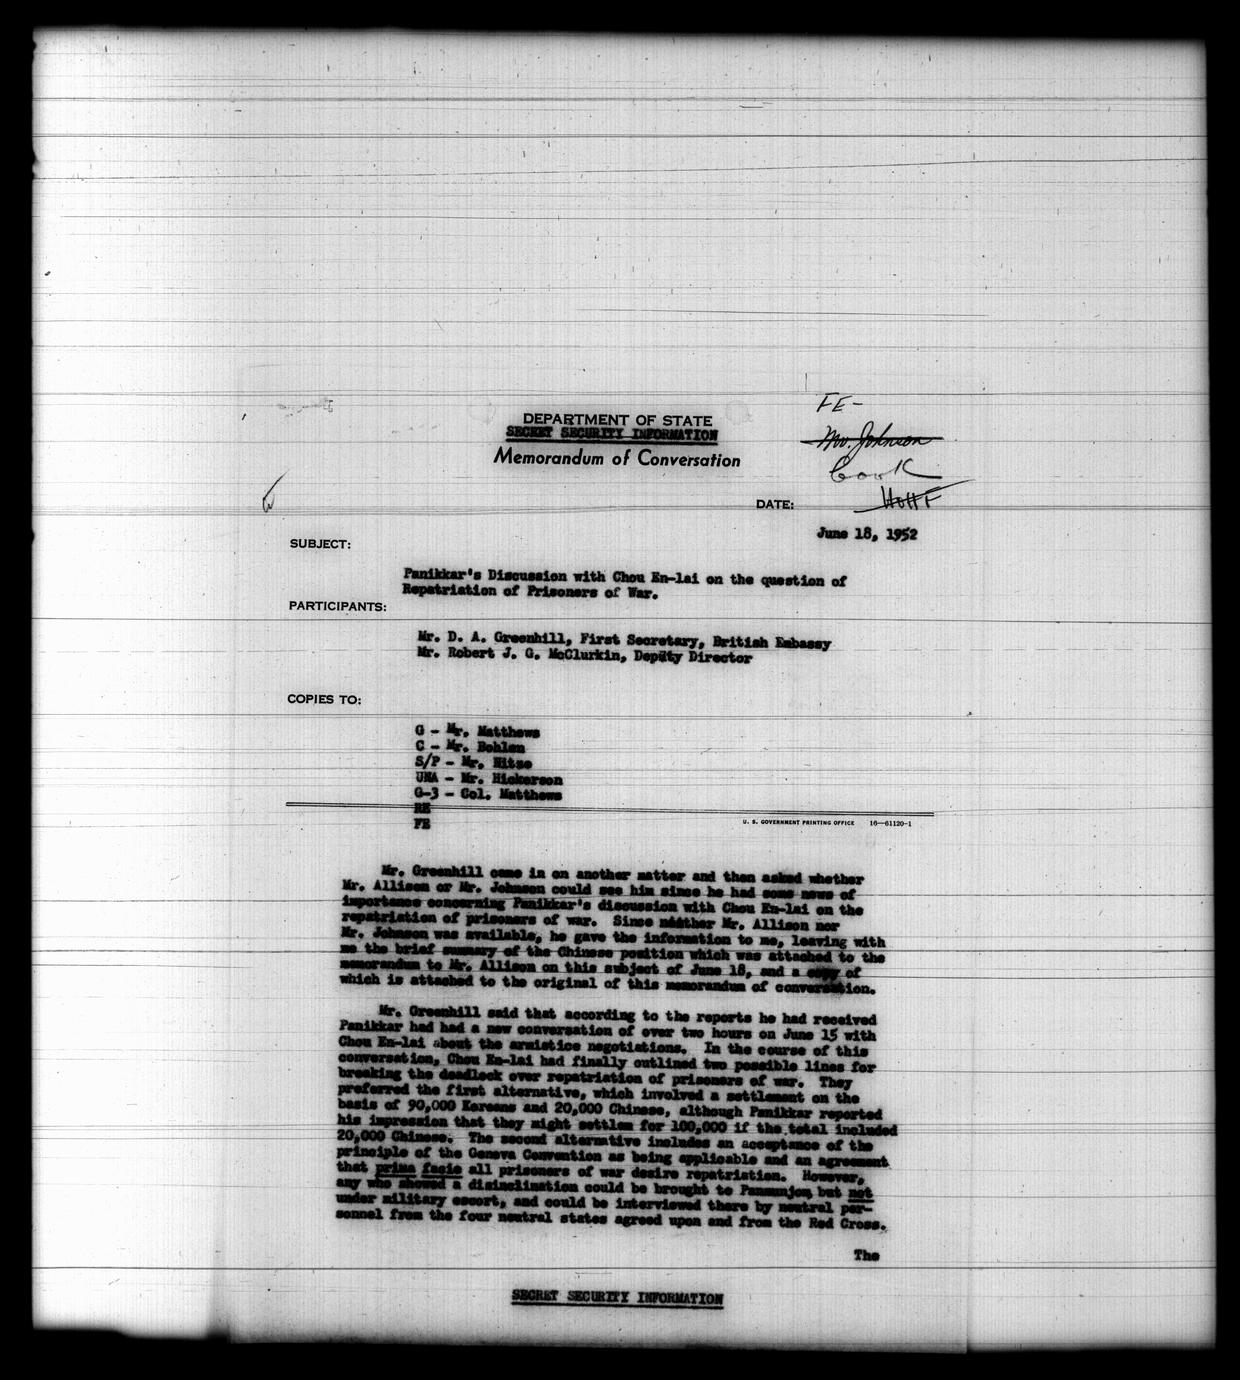 FE-
DEPARTMENT OF STATE
SECRET SECURITY INFORMATION
Mr. Johnson
Memorandum of Conversation
Cook
DATE:
June 18, 1952
SUBJECT:
Panikkar's Discussion with Chou En-lai on the question of
Repatriation of Prisoners of War.
PARTICIPANTS:
Mr. D. A. Greenhill, First Secretary, British Embassy
Mr. Robert J. G. McClurkin, Deputy Director
COPIES TO:
G - Mr. Matthews
C - Mr. Bohlen
S/P - Mr. Nitze
UNA - Mr. Hickerson
G-3 - Col. Matthews
FE
U. S. GOVERNMENT PRINTING OFFICE 16—61120-1
Mr. Greenhill came in on another matter and then asked whether
Mr. Allison or Mr. Johnson could see him since he had some news of
importance concerning Panikkar's discussion with Chou En-lai on the
repatriation of prisoners of war. Since neither Mr. Allison nor
Mr. Johnson was available, he gave the information to me, leaving with
me the brief summary of the Chinese position which was attached to the
memorandum to Mr. Allison on this subject of June 18, and a copy of
which is attached to the original of this memorandum of conversation.
Mr. Greenhill said that according to the reports he had received
Panikkar had had a new conversation of over two hours on June 15 with
Chou En-lai about the armistice negotiations. In the course of this
conversation, Chou En-lai had finally outlined two possible lines for
breaking the deadlock over repatriation of prisoners of war. They
preferred the first alternative, which involved a settlement on the
basis of 90,000 Koreans and 20,000 Chinese, although Panikkar reported
his impression that they might settlem for 100,000 if the total included
20,000 Chinese. The second alternative includes an acceptance of the
principle of the Geneva Convention as being applicable and an agreement
that prima facie all prisoners of war desire repatriation. However,
any who showed a disinclination could be brought to Panmunjom but not
under military escort, and could be interviewed there by neutral per-
sonnel from the four neutral states agreed upon and from the Red Cross.
The
SECRET SECURITY INFORMATION